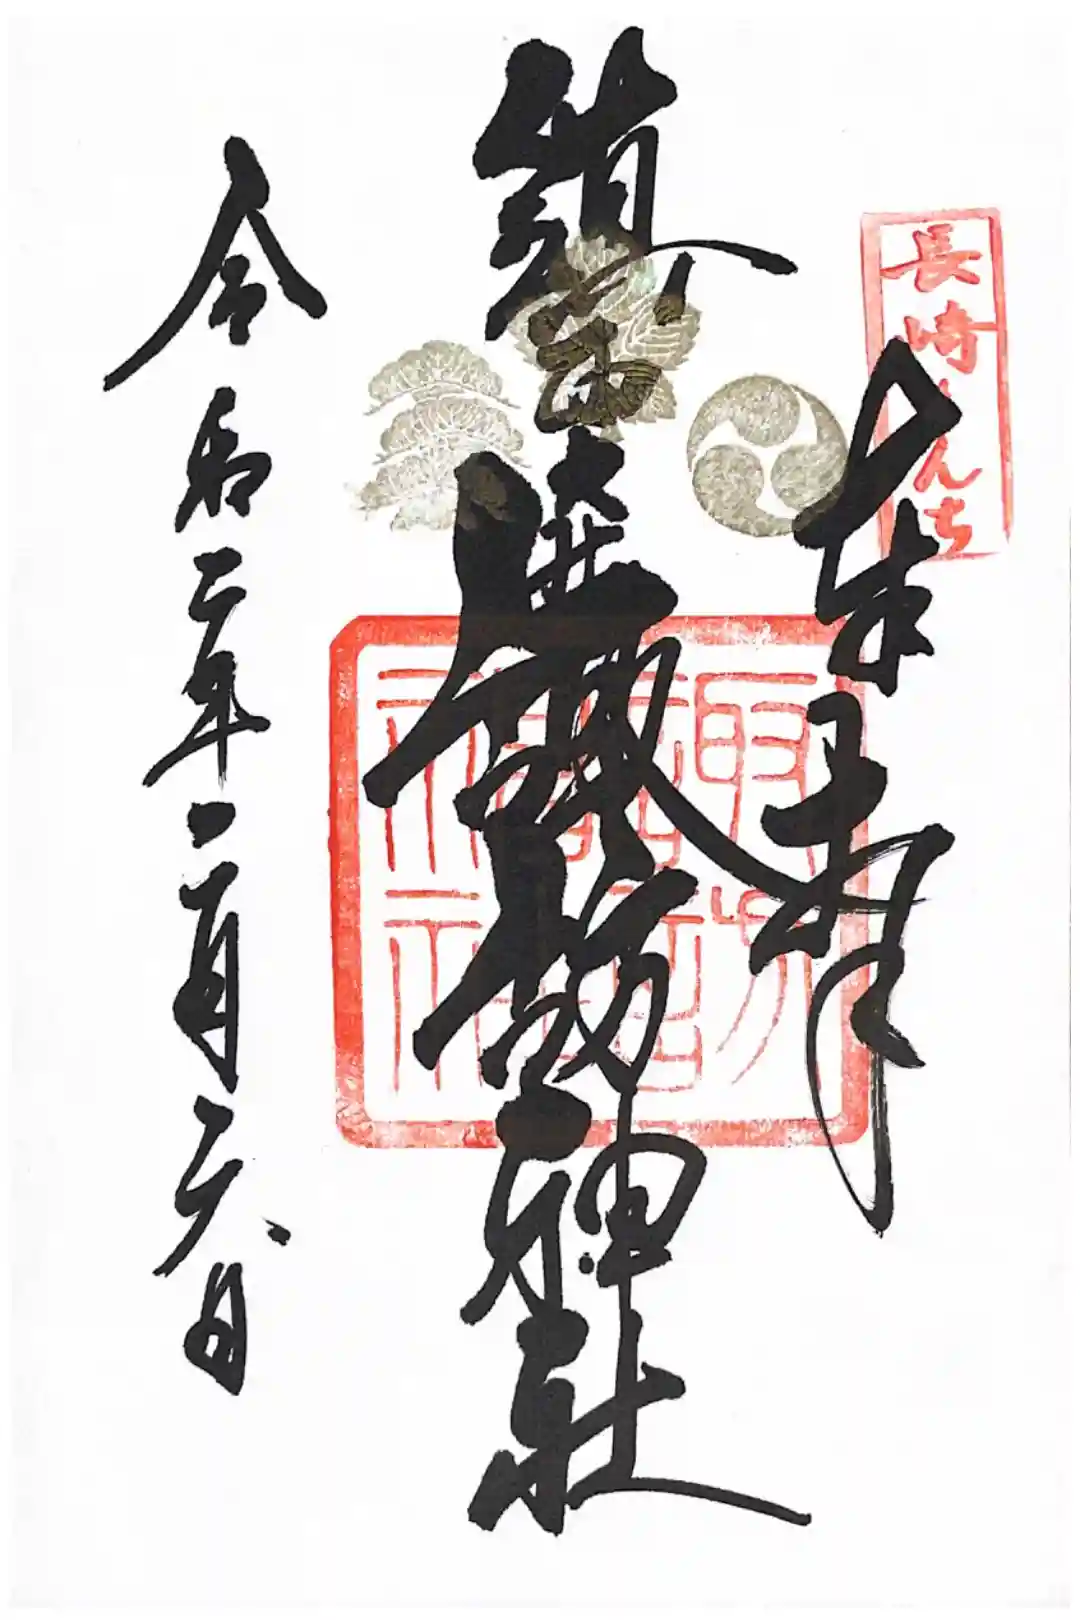 長崎くんち
奉拝
鎮西大社
諏訪神社
諏訪神社
令和二年一月二六日